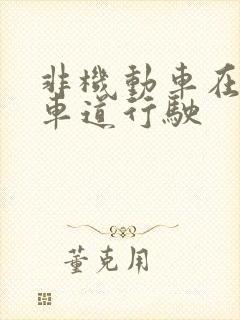 非機動車在
車道行駛
董克用